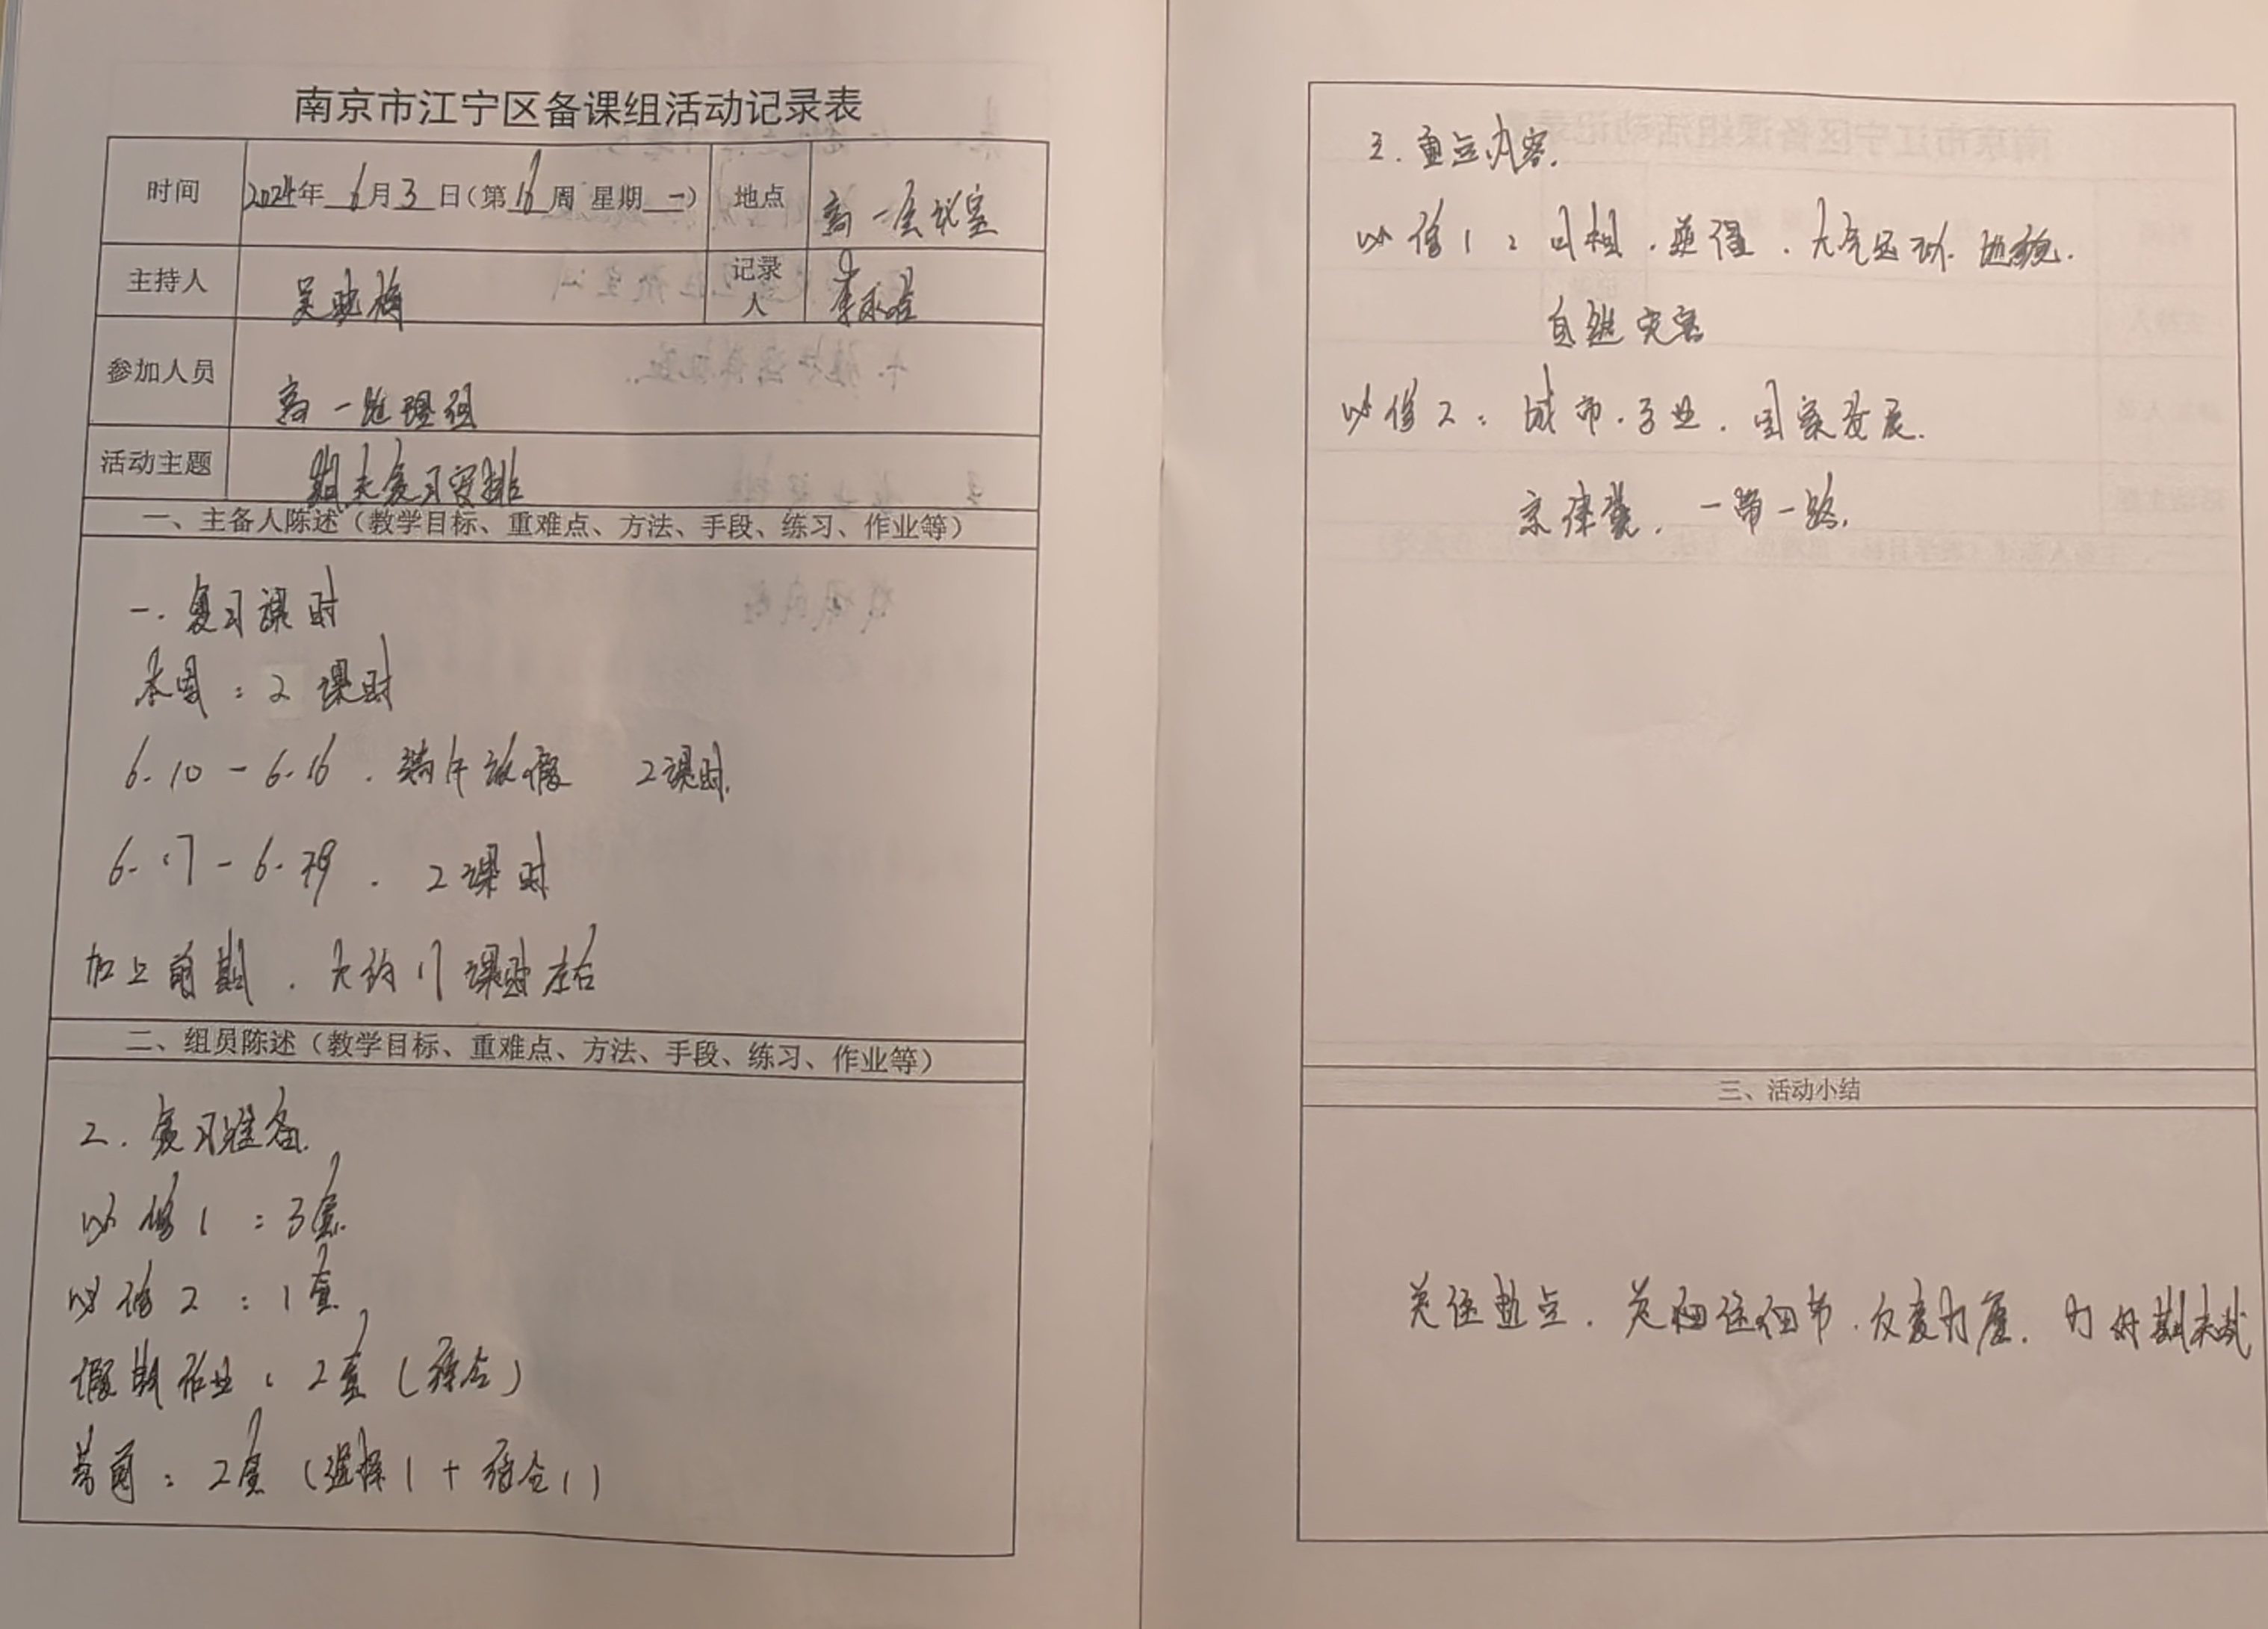 南京市江宁区备课组活动记录表
时间 2024年 6月 3日（第16周 星期一） 地点 高一会议室
主持人 吴晓梅 记录人 李
参加人员 高一地理组
活动主题 期末复习安排
一、主备人陈述（教学目标、重难点、方法、手段、练习、作业等）
一. 复习课时
本周：2 课时
6.10 - 6.16 . 端午放假 2课时.
6.17 - 6. . 2课时
加上前期 . 大约 课时左右
二、组员陈述（教学目标、重难点、方法、手段、练习、作业等）
二. 复习准备.
必修1 ：3套.
必修2 ：1套
假期作业：2套（综合）
考前：2套（选择1 + 综合1）
三. 重点内容.
必修1：日相 . . 大气运动. 地貌.
自然灾害
必修2：城市. . 国家发展.
京津冀. 一带一路.
三、活动小结
. 关 住细节 . 期末